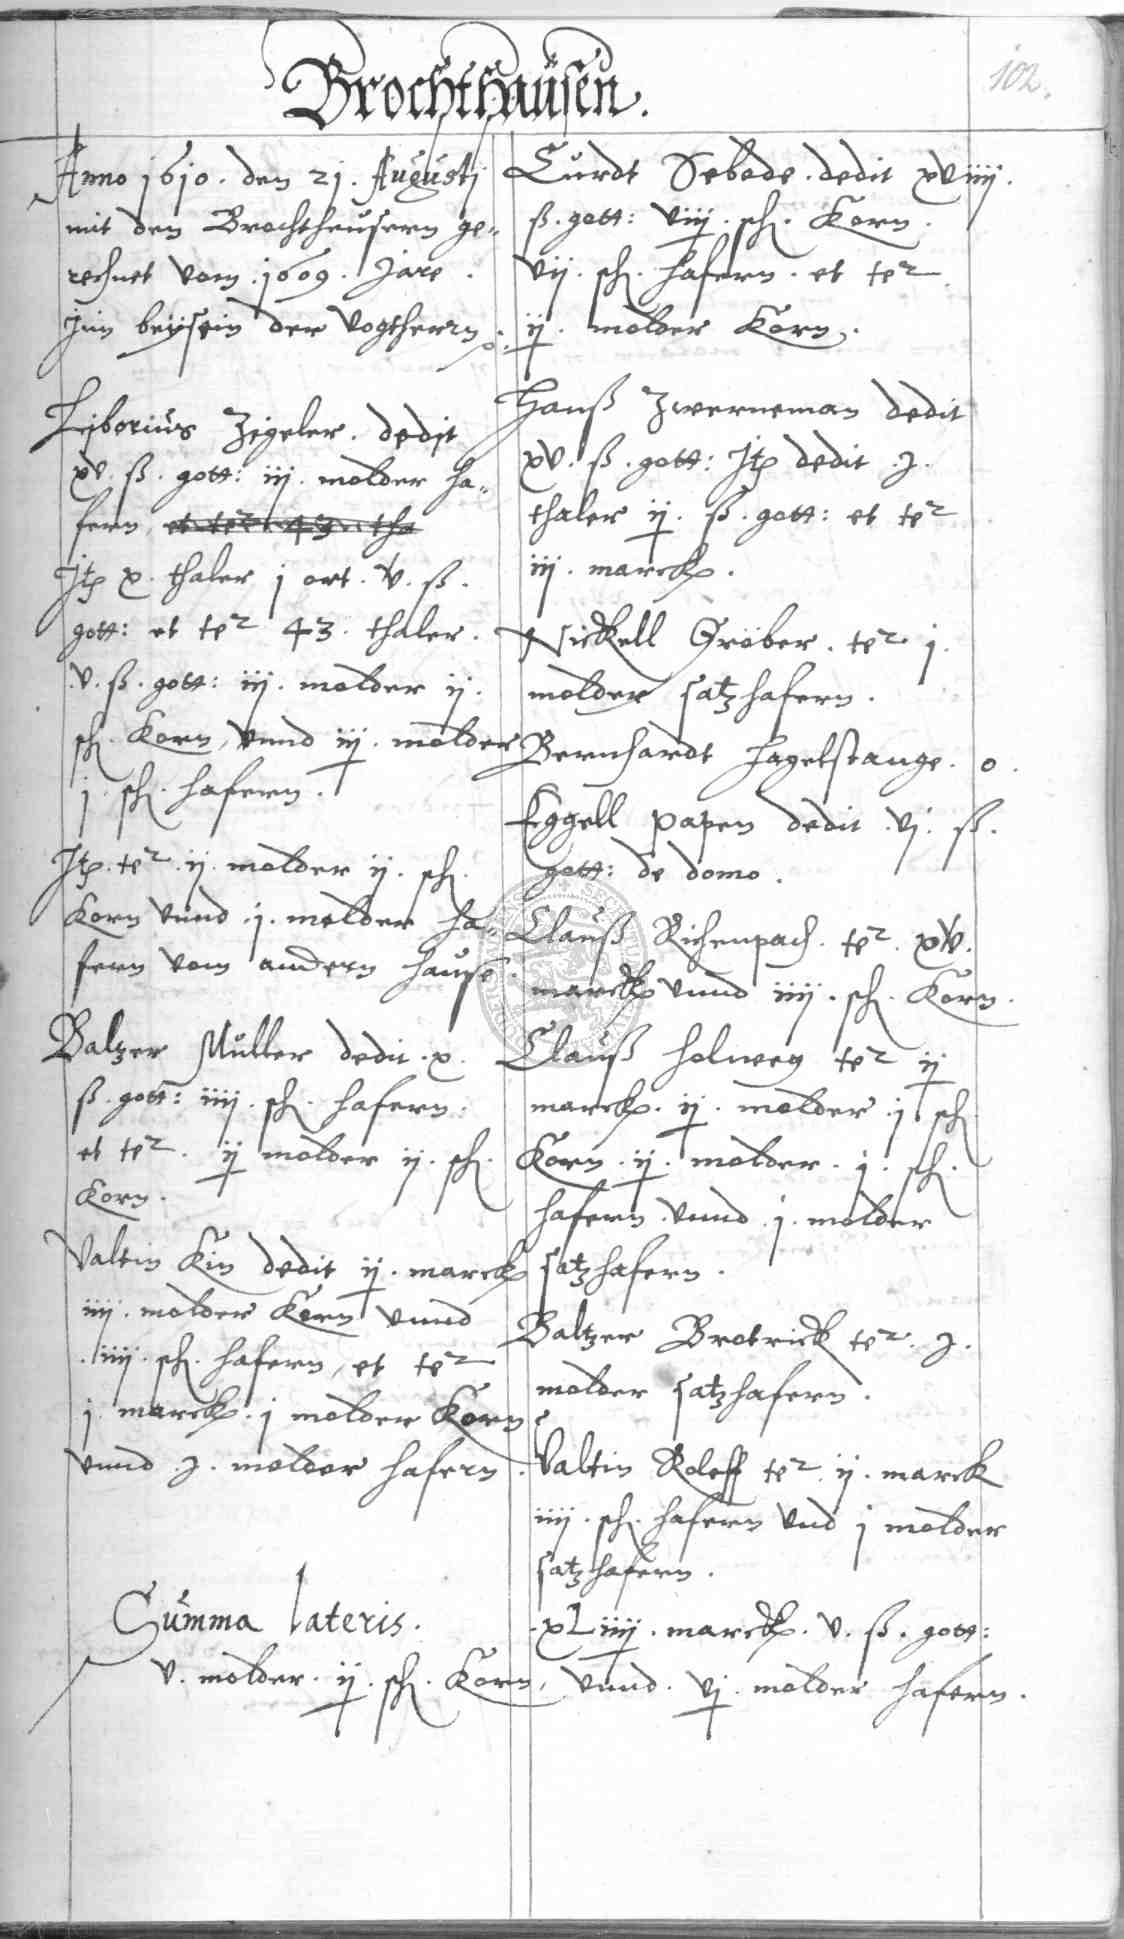 102.
Brochthausen.
Anno 1610. den 21. Augustj
mit den Brochtheusern ge„
rechnet vom 1609. Jare.
Jm beysein der Vogtherrn.
Lyborius Zigeler. dedit
xv. ß. gott: iij. molder ha„
fern, et ter 43 tha
Jtp x. thaler j ort. v. ß.
gott: et ter 43. thaler.
v. ß. gott: iij. molder ij.
sch. Korn, vnnd iij. molder
j. sch. hafern.
Jtp. ter. ij. molder ij. sch.
Korn vnnd .j. molder ha„
fern vom andern hause.
Baltzer Muller dedit. x.
ß. gott: iiij. sch. hafern.
et ter. ij molder ij. sch.
Korn.
Valtin Kin dedit ij. marck
iiij. molder Korn vnnd
. iiij. sch. hafern, et ter
j. marck. j molder Korn
vnnd .j. molder hafern.
Curdt Sebode. dedit xviiij.
ß. gott: viij. sch. Korn.
vij. sch. hafern. et ter
ij. molder Korn.
Hanß Zwerneman dedit
xv. ß. gott: Jtp dedit .j.
thaler ij. ß. gott: et ter
iij. marck.
Nickell Gröber. ter j.
molder satzhafern.
Bernhardt Hagelstange. o.
Eggell papen dedit .vj. ß.
gott: de domo.
Clauß Richenpach. ter. xv.
marck vnnd iiij. sch. Korn.
Clauß holweg ter ij
marck. ij. molder .j. sch
Korn .ij. molder. j. sch.
hafern. vnnd .j. molder
satzhafern.
Baltzer Brotrick ter. j.
molder satzhafern.
Valtin Roleff ter. ij. marck
iiij. sch. hafern vnd j molder
satzhafern.
Summa lateris. xLiiij. marck. v. ß. gott:
v. molder. ij. sch. Korn, vnnd. vj. molder hafern.